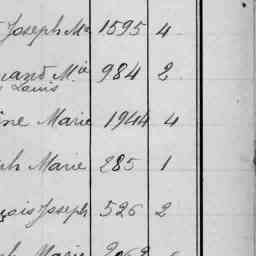 Joseph Ma 1595 4
Mie 984 2
Louis
ine Marie 1944 4
ph Marie 285 1
çois Joseph 526 2
Marie